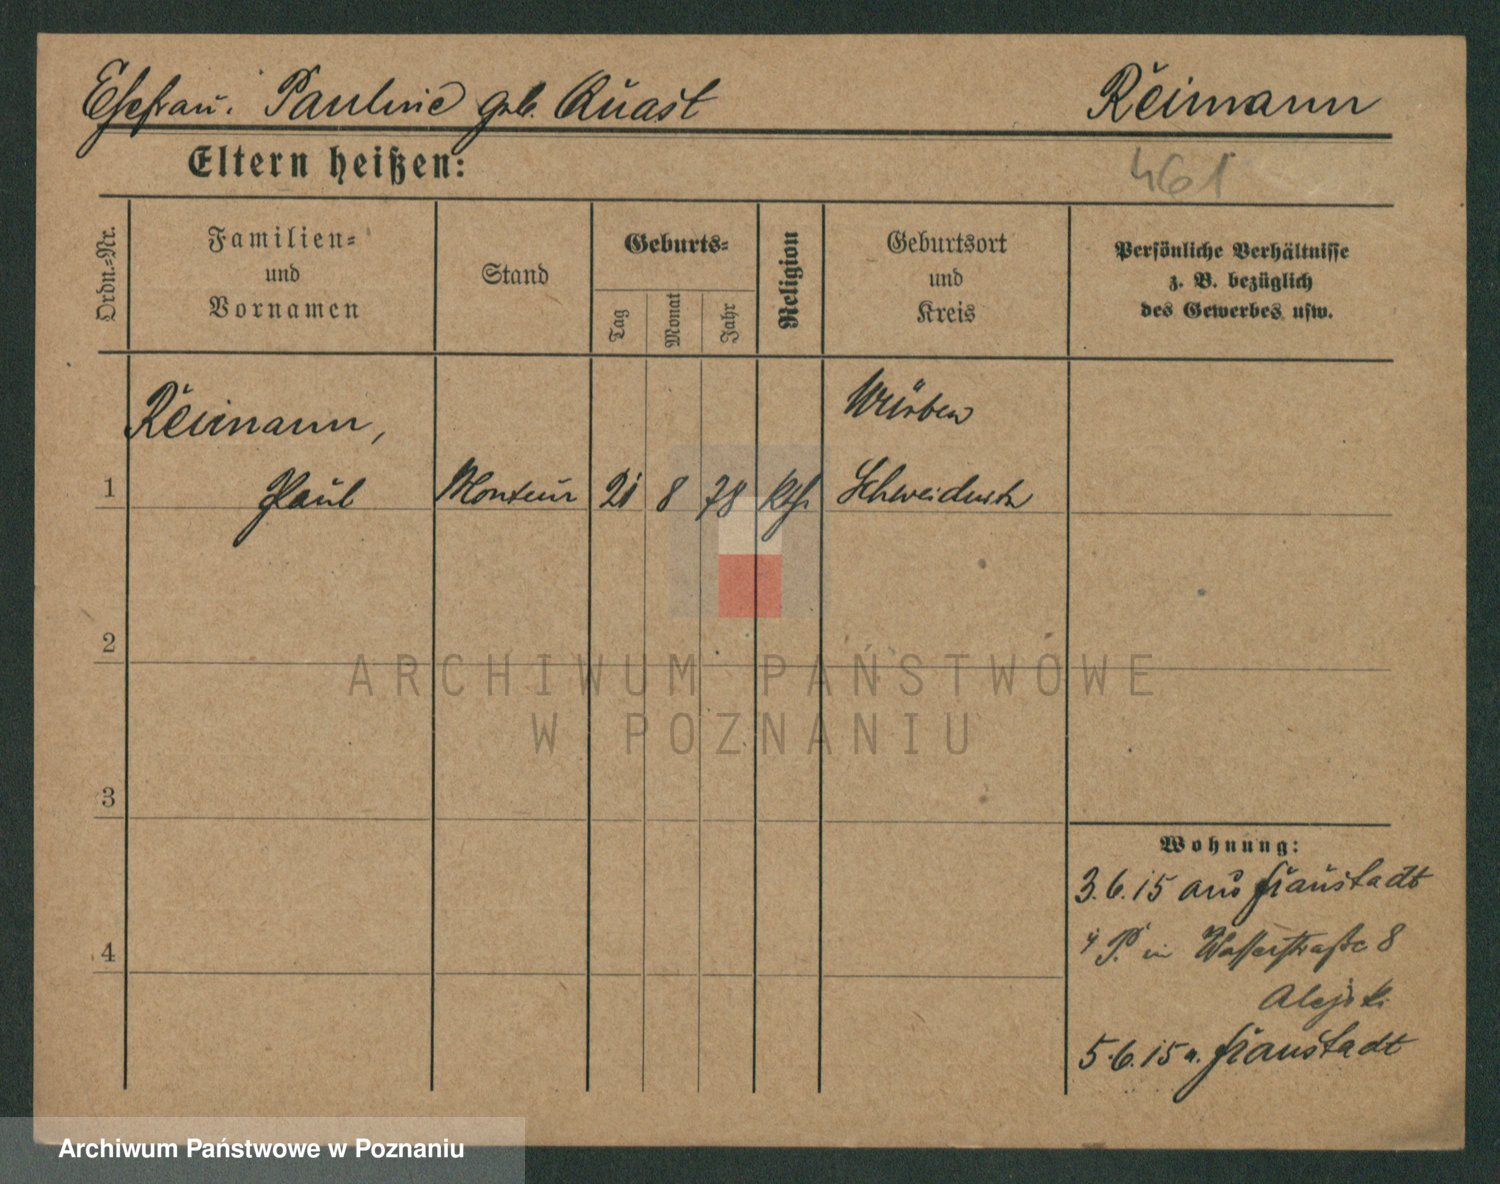 Ehefrau. Pauline geb. Quast
Reimann
Eltern heißen:
461
Ordn.-Nr.
Familien-
und
Vornamen
Stand
Geburts-
Tag
Monat
Jahr
Religion
Geburtsort
und
Kreis
Persönliche Verhältnisse
z. B. bezüglich
des Gewerbes usw.
Reimann,
Würben
1
Paul
Monteur
21
8
78
kth.
Schweidnitz
2
ARCHIWUM PAŃSTWOWE
W POZNANIU
3
Wohnung:
3.6.15 aus Fraustadt
4
P. in Wasserstraße 8
5.6.15 n. Fraustadt
Archiwum Państwowe w Poznaniu